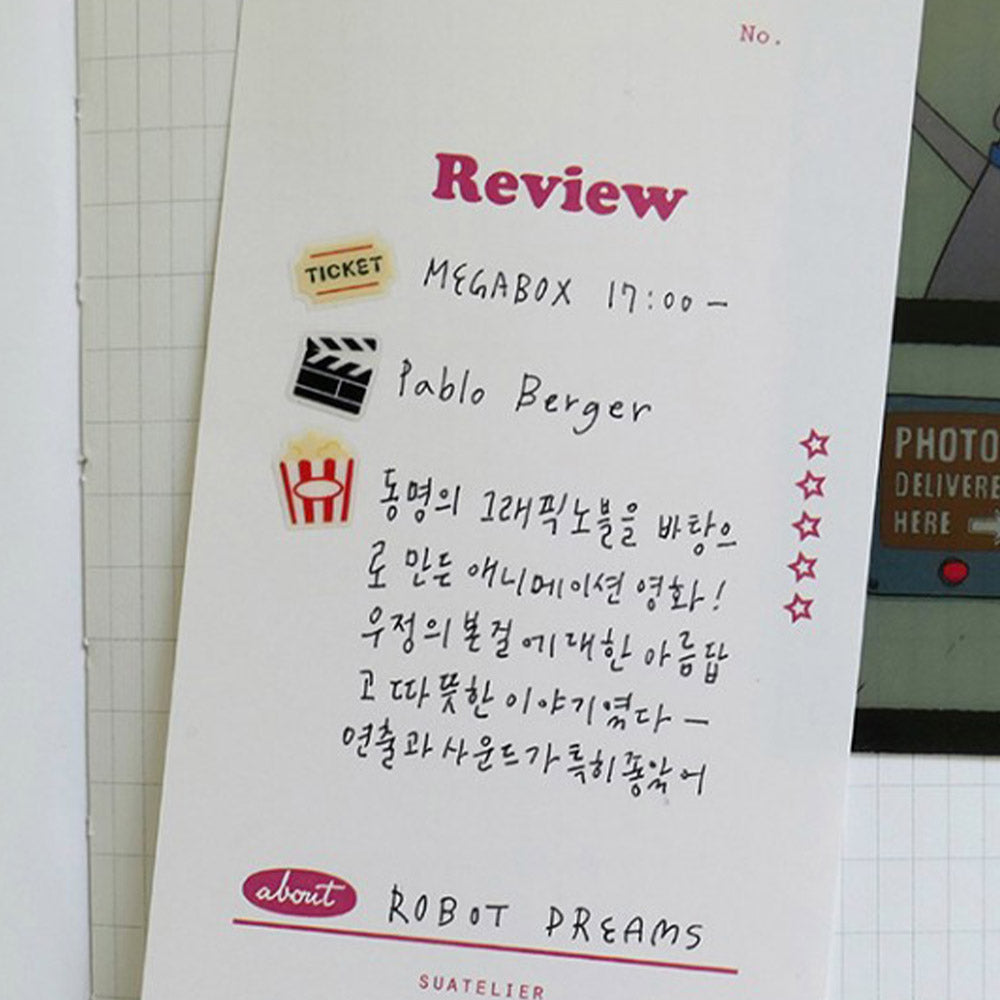 No.
Review
TICKET
MEGABOX 17:00 –
Pablo Berger
동명의 그래픽노블을 바탕으
로 만든 애니메이션 영화!
우정의 본결에 대한 아름답
고 따뜻한 이야기였다 –
연출과 사운드가 특히 좋았어
about ROBOT DREAMS
SUATELIER
PHOTO
DELIVERE
HERE